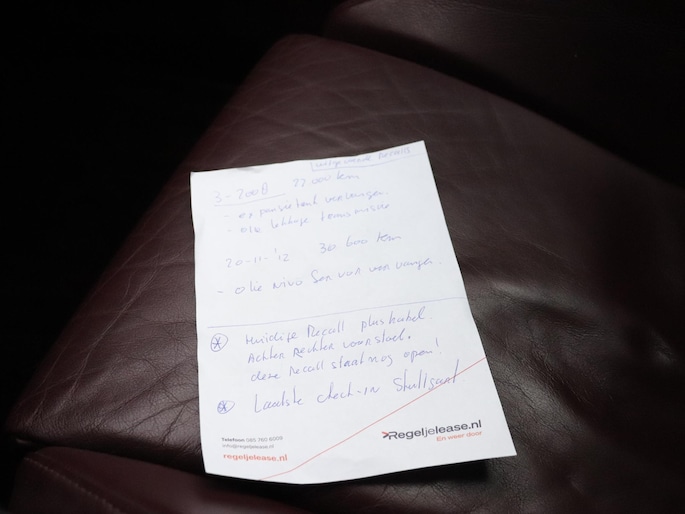 3-2008 22 000 km
- expansietank vervangen.
- olie lekkage transmissie
20-11-'12 30 600 km
- olie nivo Sensor vervangen.
Huidige Recall pluskabel.
Achter Rechter voorstoel.
deze Recall staat nog open!
Laatste check-in Stuttgart
Telefoon 085 760 6009
info@regeljelease.nl
regeljelease.nl
Regeljelease.nl
En weer door